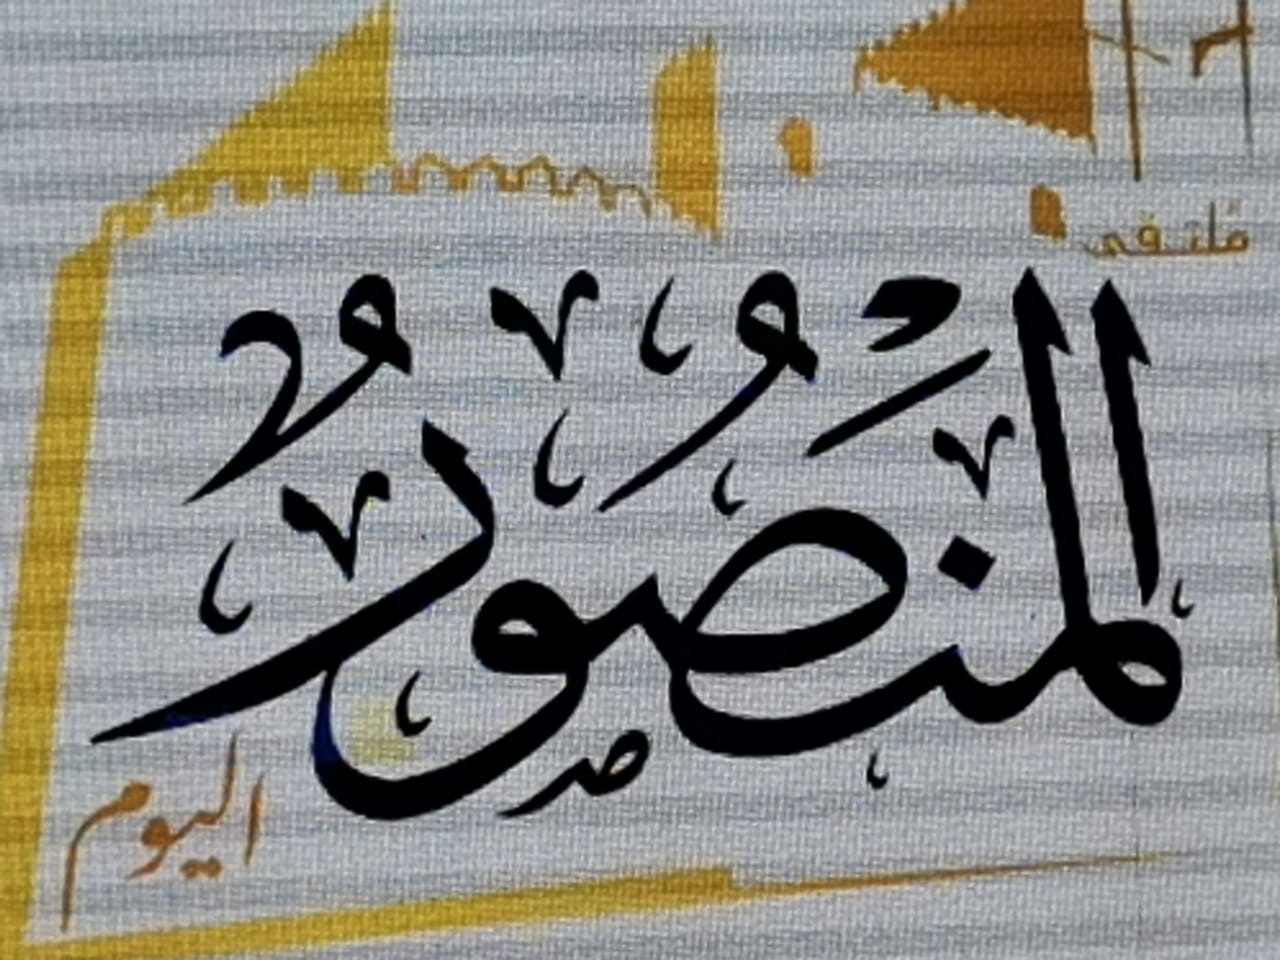 ملتقى
المنصور
اليوم